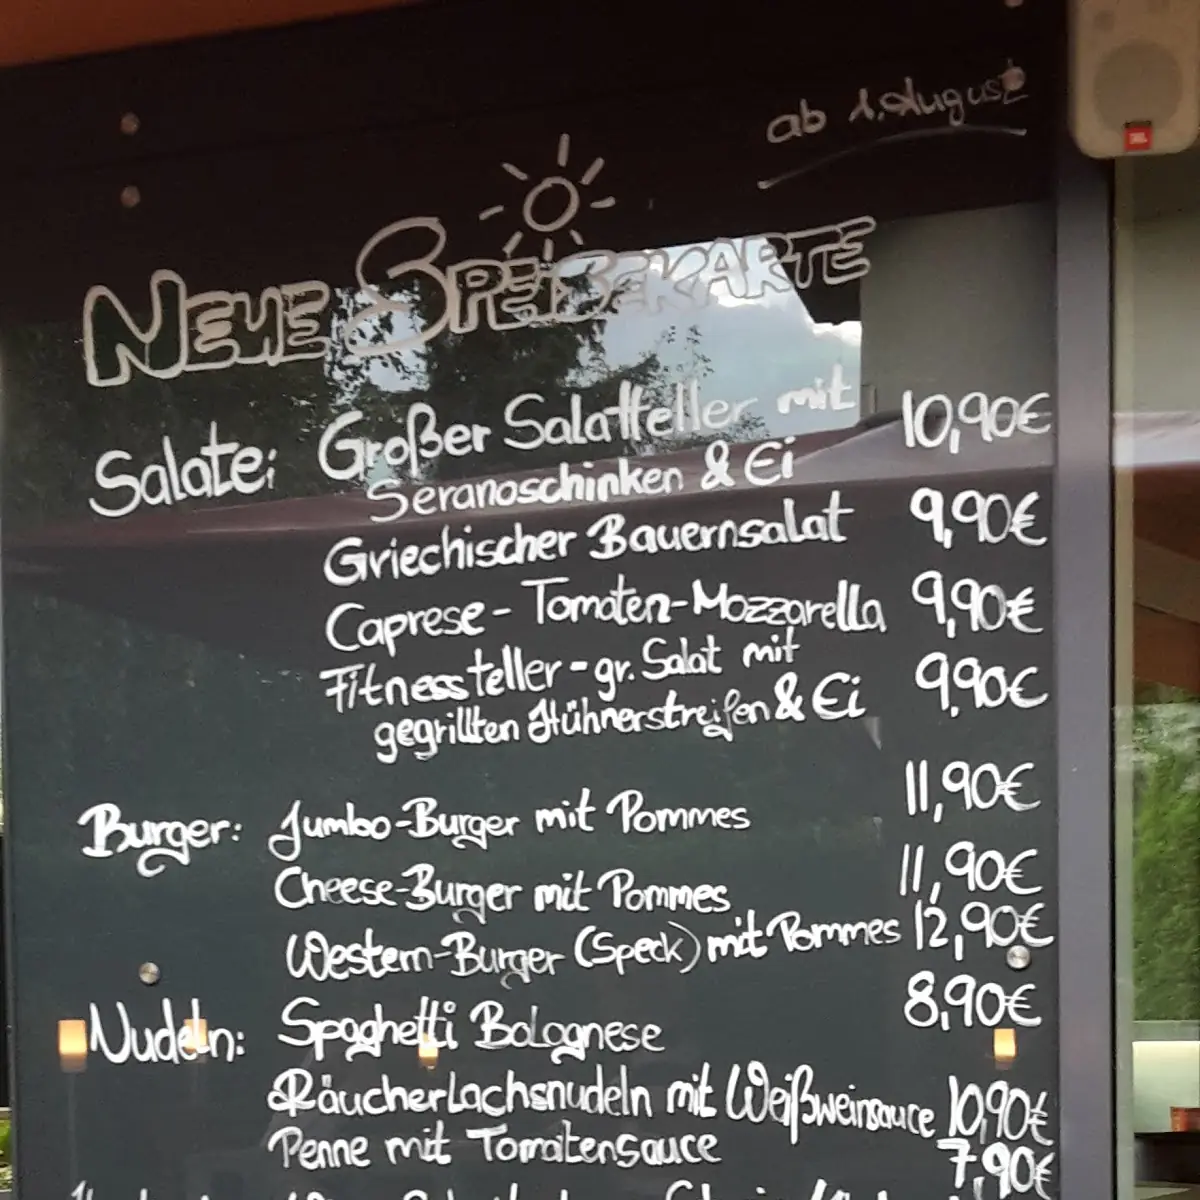 ab 1. August
NEUE SPEISEKARTE
Salate: Großer Salatteller mit 10,90€
Seranoschinken & Ei
Griechischer Bauernsalat 9,90€
Caprese - Tomaten-Mozzarella 9,90€
Fitnessteller - gr. Salat mit 9,90€
gegrillten Hühnerstreifen & Ei
Burger: Jumbo-Burger mit Pommes 11,90€
Cheese-Burger mit Pommes 11,90€
Western-Burger (Speck) mit Pommes 12,90€
Nudeln: Spaghetti Bolognese 8,90€
Räucherlachsnudeln mit Weißweinsauce 10,90€
Penne mit Tomatensauce 7,90€